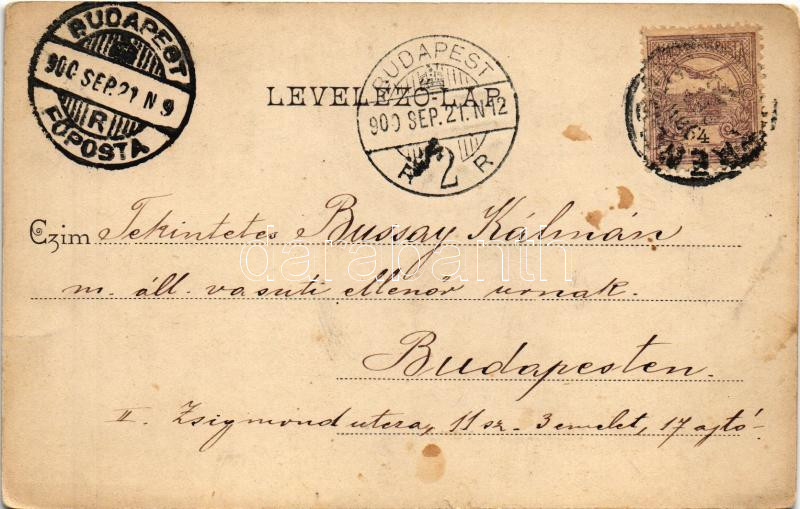 BUDAPEST
900 SEP. 21 N 9
R
FŐPOSTA
BUDAPEST
900 SEP. 21. N 12
R 2 R
LEVELEZŐ-LAP
Czim Tekintetes Bussay Kálmán
m. áll. vasúti ellenőr urnak.
Budapesten.
II. Zsigmond utcza, 11 sz. 3 emelet, 17 ajtó
darabanth